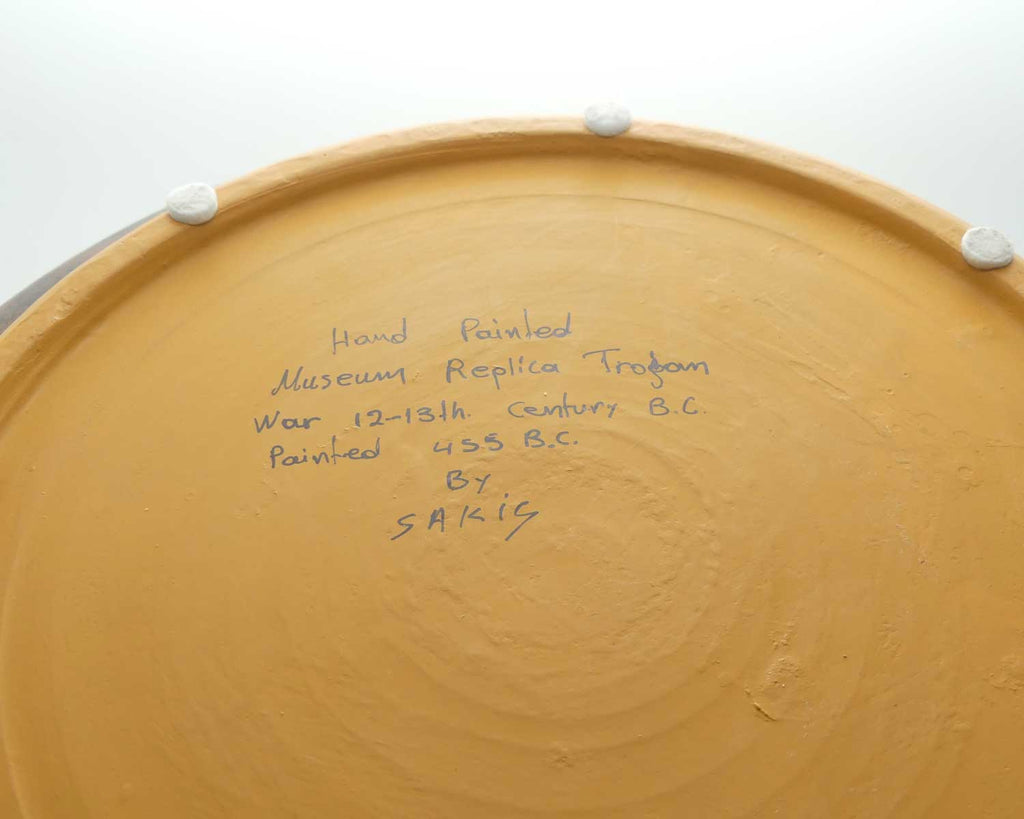 Hand Painted
Museum Replica Trojan
War 12-13th. Century B.C.
Painted 455 B.C.
By
SAKIS